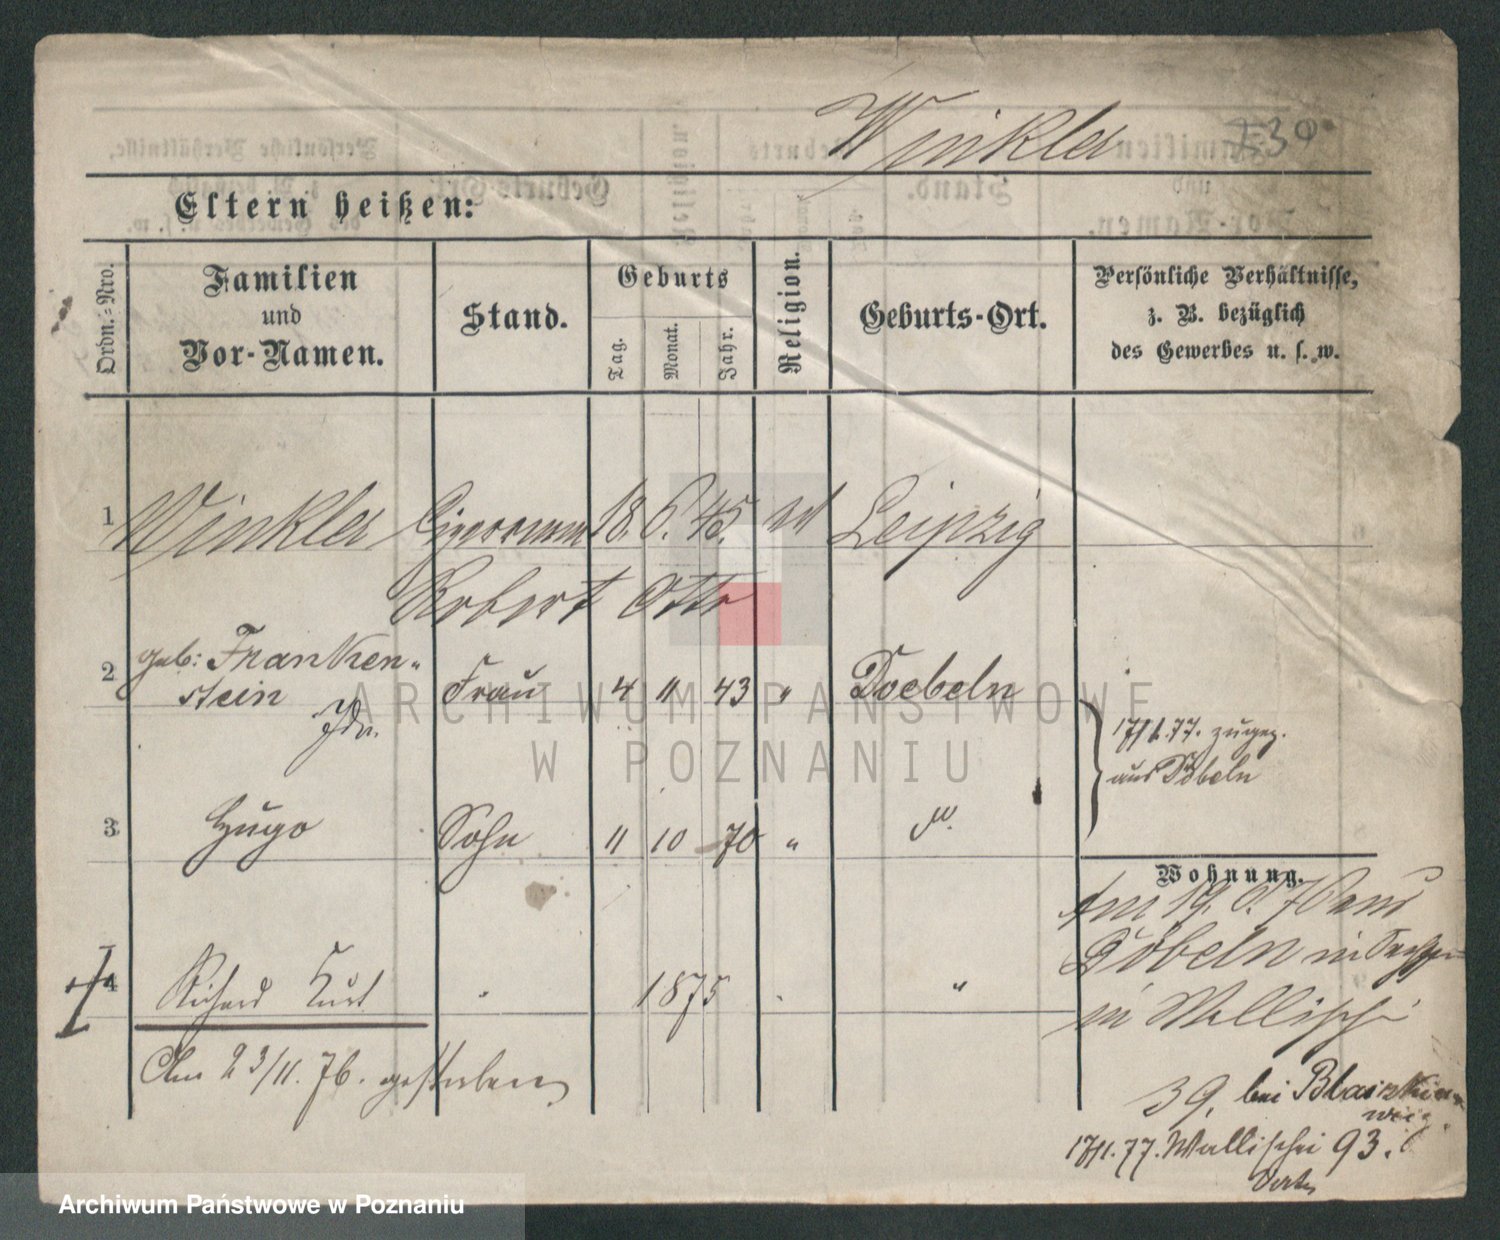 Winkler 230
Eltern heißen:
Ordn.=Nro.
Familien
und
Vor-Namen.
Stand.
Geburts
Tag.
Monat.
Jahr.
Religion.
Geburts-Ort.
Persönliche Verhältnisse,
z. B. bezüglich
des Gewerbes u. s. w.
1 Winkler 18. 6. 45. Leipzig
Robert Otto
2 geb: Franken-
stein Frau 4 11 43 " Doebeln
Ida.
17/1.77. zugez.
aus Döbeln
3 Hugo Sohn 11 10 70 "
Wohnung.
Am 19. 6. 76 aus
Döbeln in Sachsen
4 Richard Kurt " 1875 "
in Wallischei
Am 23/11. 76. gestorben
39, bei
17/1.77. Wallischei 93.
ARCHIWUM PAŃSTWOWE
W POZNANIU
Archiwum Państwowe w Poznaniu